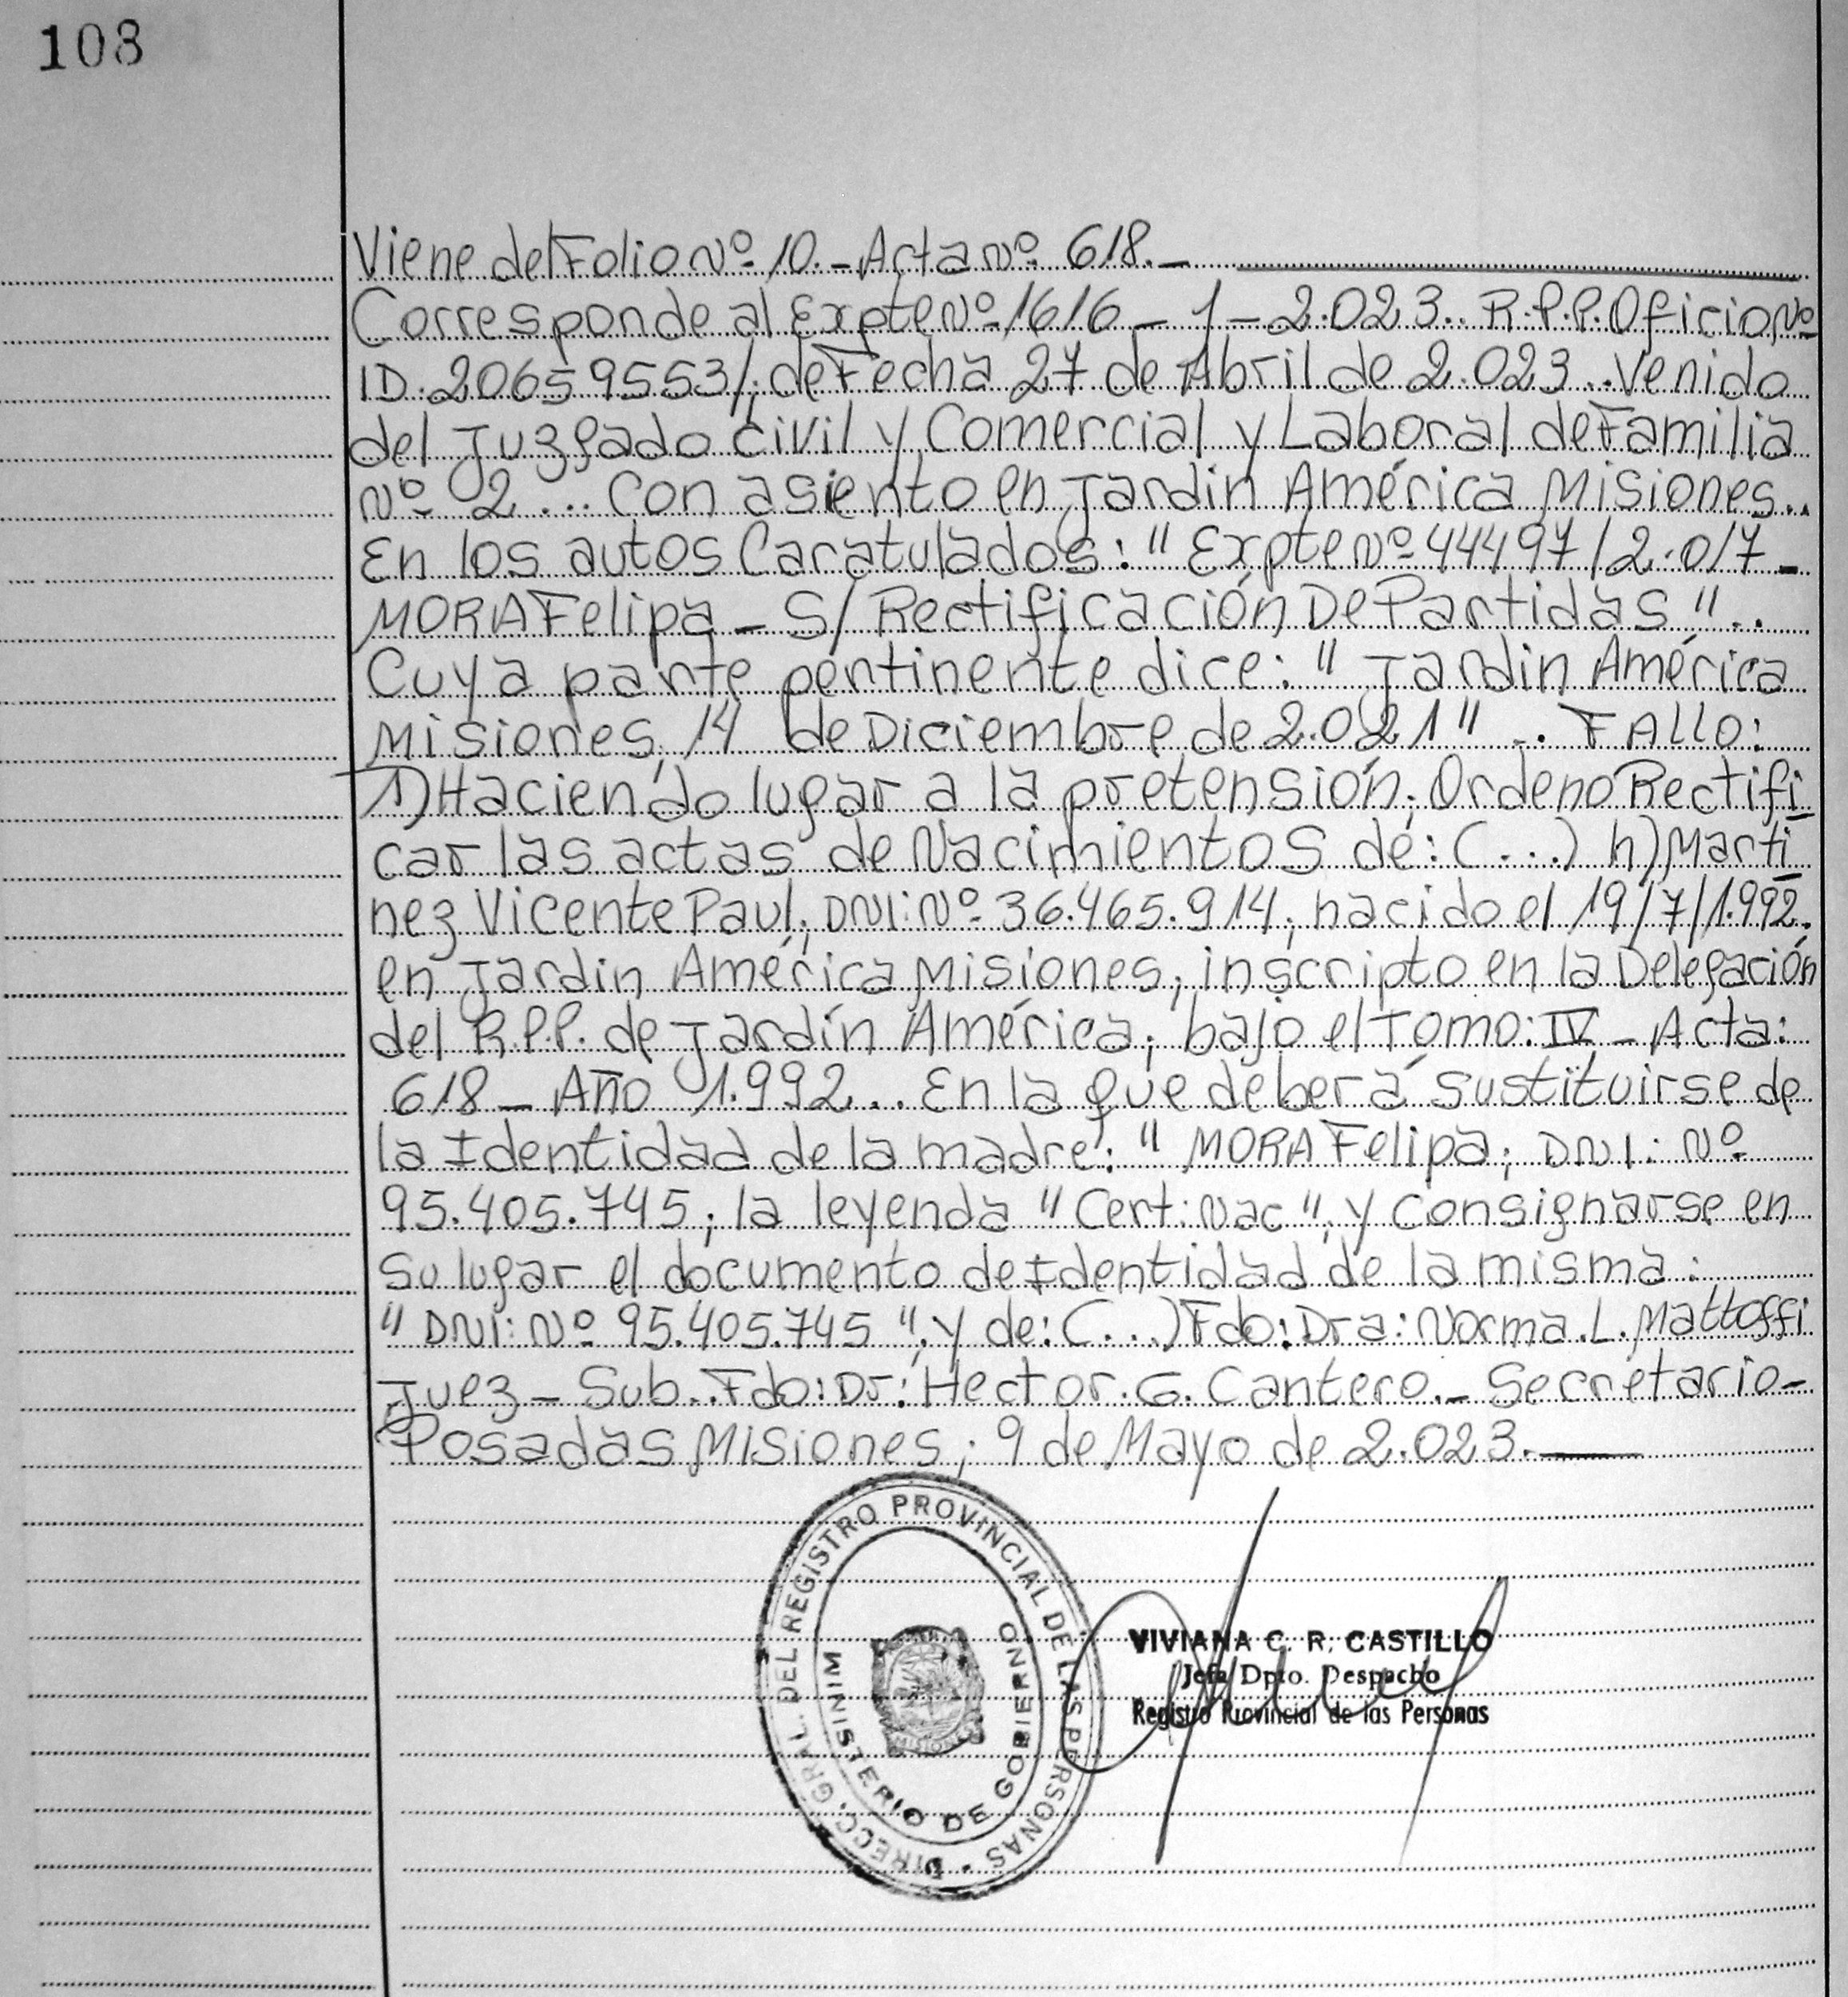 108
Viene del Folio Nº 10.- Acta nº 618.-
Corresponde al Expte Nº 1616-1-2.023.. R.P.P. Oficio Nº
ID. 20659553/. de Fecha 27 de Abril de 2.023.. Venido
del Juzgado Civil y Comercial y Laboral de Familia
Nº 2... Con asiento en Jardin América Misiones..
En los autos Caratulados: "Expte Nº 44497/2.017-
MORA Felipa - S/ Rectificación De Partidas"..
Cuya parte pertinente dice: "Jardin América
Misiones, 14 de Diciembre de 2.021".. FALLO:
1) Haciendo lugar a la pretensión; Ordeno Rectifi
car las actas de Nacimientos de: (...) h) Marti
nez Vicente Paul; DNI: Nº 36.465.914; nacido el 19/7/1.992.
en Jardin América Misiones; inscripto en la Delegación
del R.P.P. de Jardín América; bajo el Tomo: IV - Acta:
618 - Año 1.992... En la que deberá sustituirse de
la Identidad de la madre: "MORA Felipa; DNI: Nº
95.405.745; la leyenda "Cert: Nac"; y Consignarse en
su lugar el documento de Identidad de la misma:
"DNI: Nº 95.405.745". y de: (...) Fdo: Dra: Norma. L. Mattossi
Juez - Sub.. Fdo: Dr: Hector. G. Cantero.- Secretario-
Posadas Misiones; 9 de Mayo de 2.023.-
DIRECC. GRAL. DEL REGISTRO PROVINCIAL DE LAS PERSONAS
MINISTERIO DE GOBIERNO
MISIONES
VIVIANA C. R. CASTILLO
Jefa Dpto. Despacho
Registro Provincial de las Personas